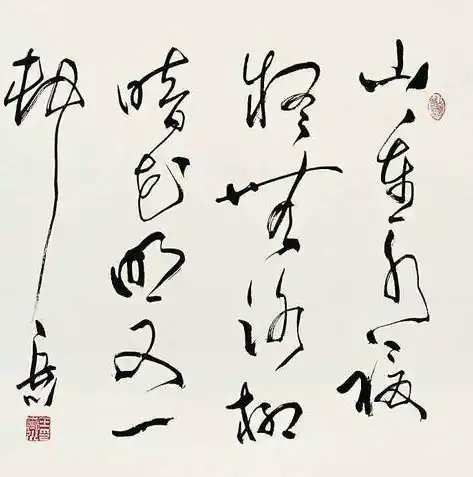 山重水複
疑無路柳
暗花明又一
村